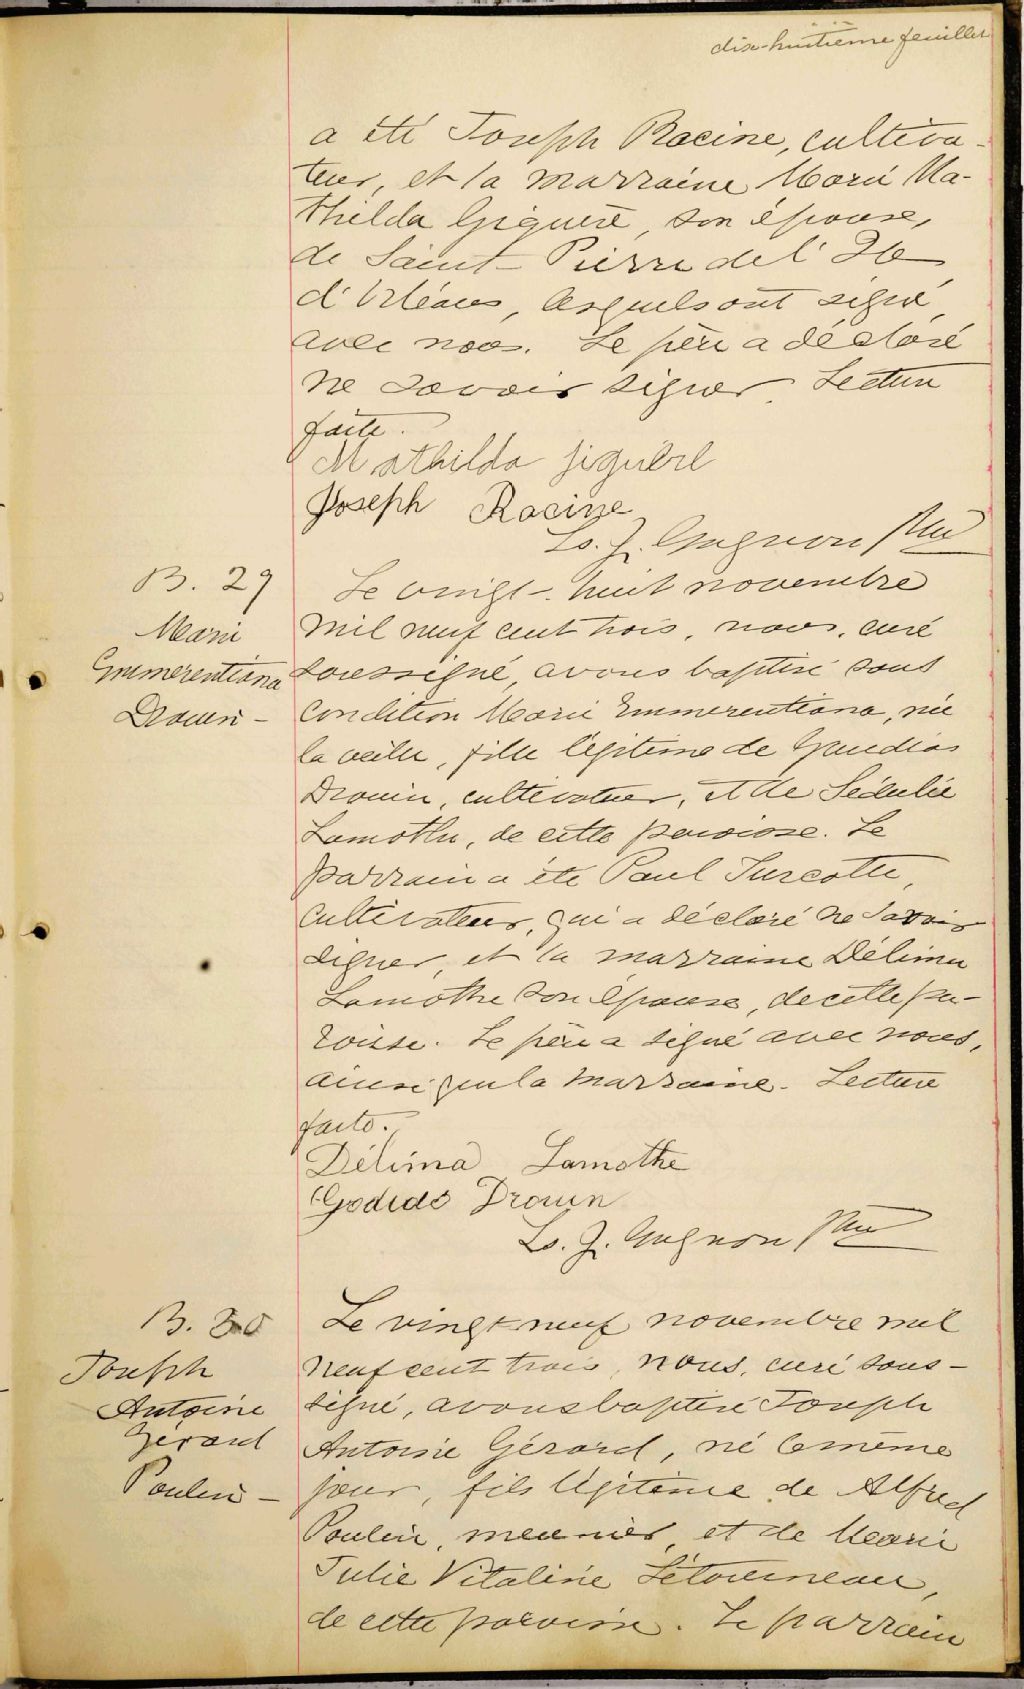 dix-huitième feuillet
a été Joseph Racine, cultiva-
teur, et la marraine Marie Ma-
thilda Giguère, son épouse,
de Saint-Pierre de l'Ile
d'Orléans, lesquels ont signé
avec nous. Le père a déclaré
ne savoir signer. Lecture
faite.
Mathilda Jiguère
Joseph Racine
Ls. J. Gagnon Ptre
B. 29
Marie
Emmerentiana
Drouin -
Le vingt-huit novembre
mil neuf cent trois, nous, curé
soussigné, avons baptisé sous
condition Marie Emmerentiana, née
la veille, fille légitime de Gaudias
Drouin, cultivateur, et de Sédulie
Lamothe, de cette paroisse. Le
parrain a été Paul Turcotte,
cultivateur, qui a déclaré ne savoir
signer, et la marraine Délima
Lamothe son épouse, de cette pa-
roisse. Le père a signé avec nous,
ainsi que la marraine. Lecture
faite.
Délima Lamothe
Drouin
Ls. J. Gagnon Ptre
B. 30
Joseph
Antoine
Gérard
Poulin -
Le vingt-neuf novembre mil
neuf cent trois, nous, curé sous-
signé, avons baptisé Joseph
Antoine Gérard, né le même
jour, fils légitime de Alfred
Poulin, meunier, et de Marie
Julie Vitaline Létourneau,
de cette paroisse. Le parrain